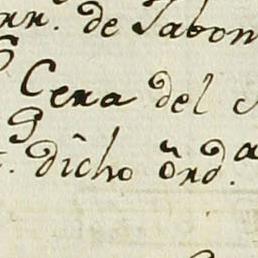 de Jabon
Cera del
dicho ōrd.ª